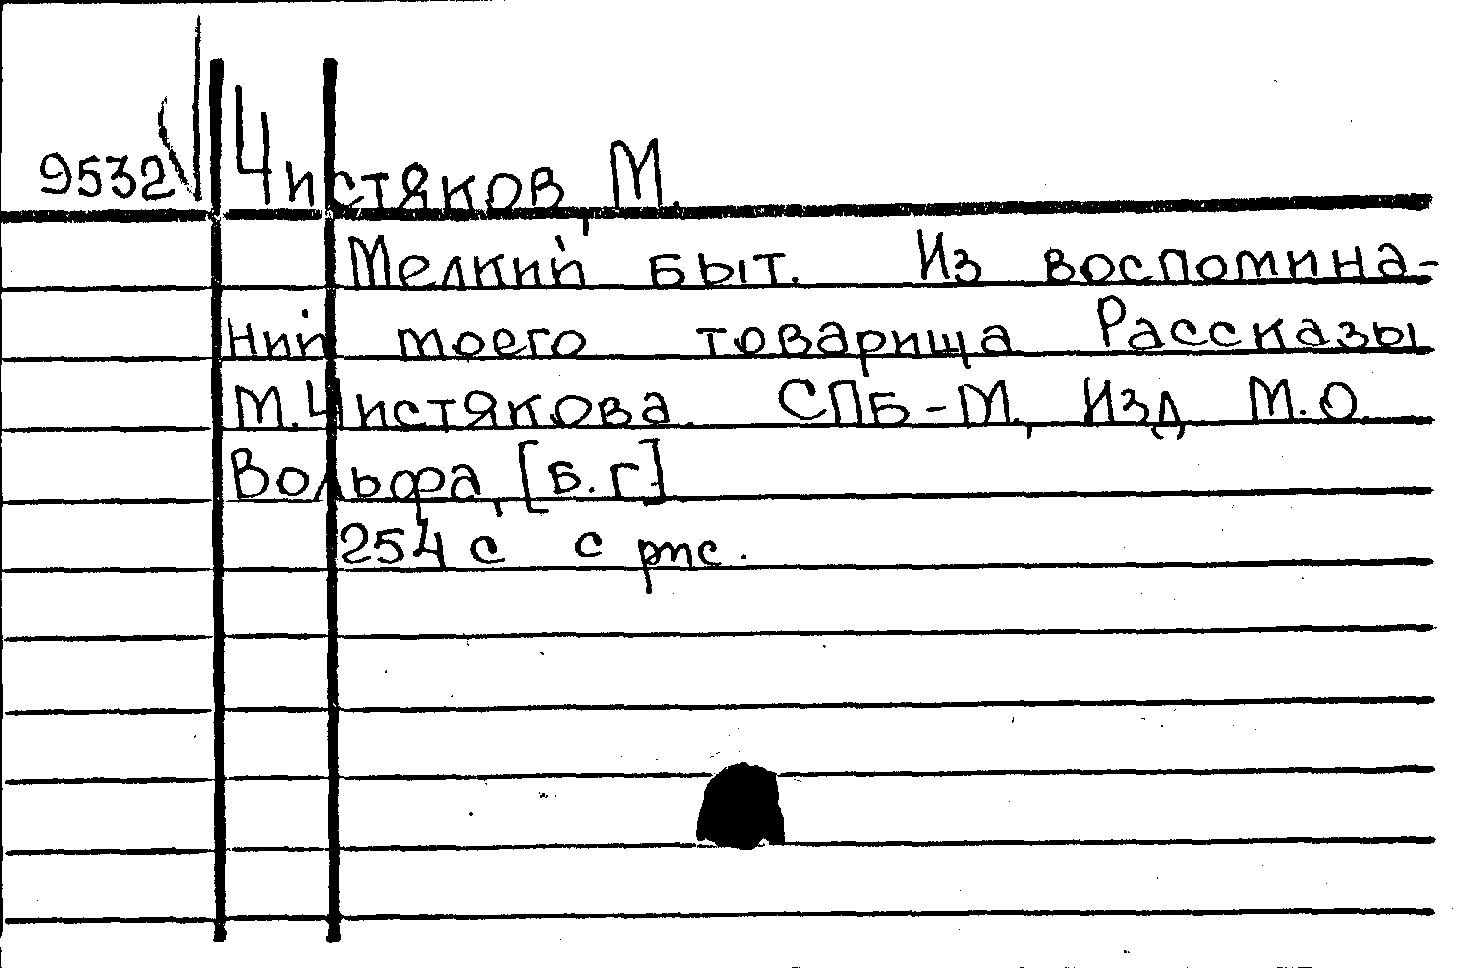 9532 Чистяков, М.
Мелкий быт. Из воспомина-
ний моего товарища Рассказы
М. Чистякова. СПБ-М., Изд М.О.
Вольфа, [б.г]
254 с с рис.